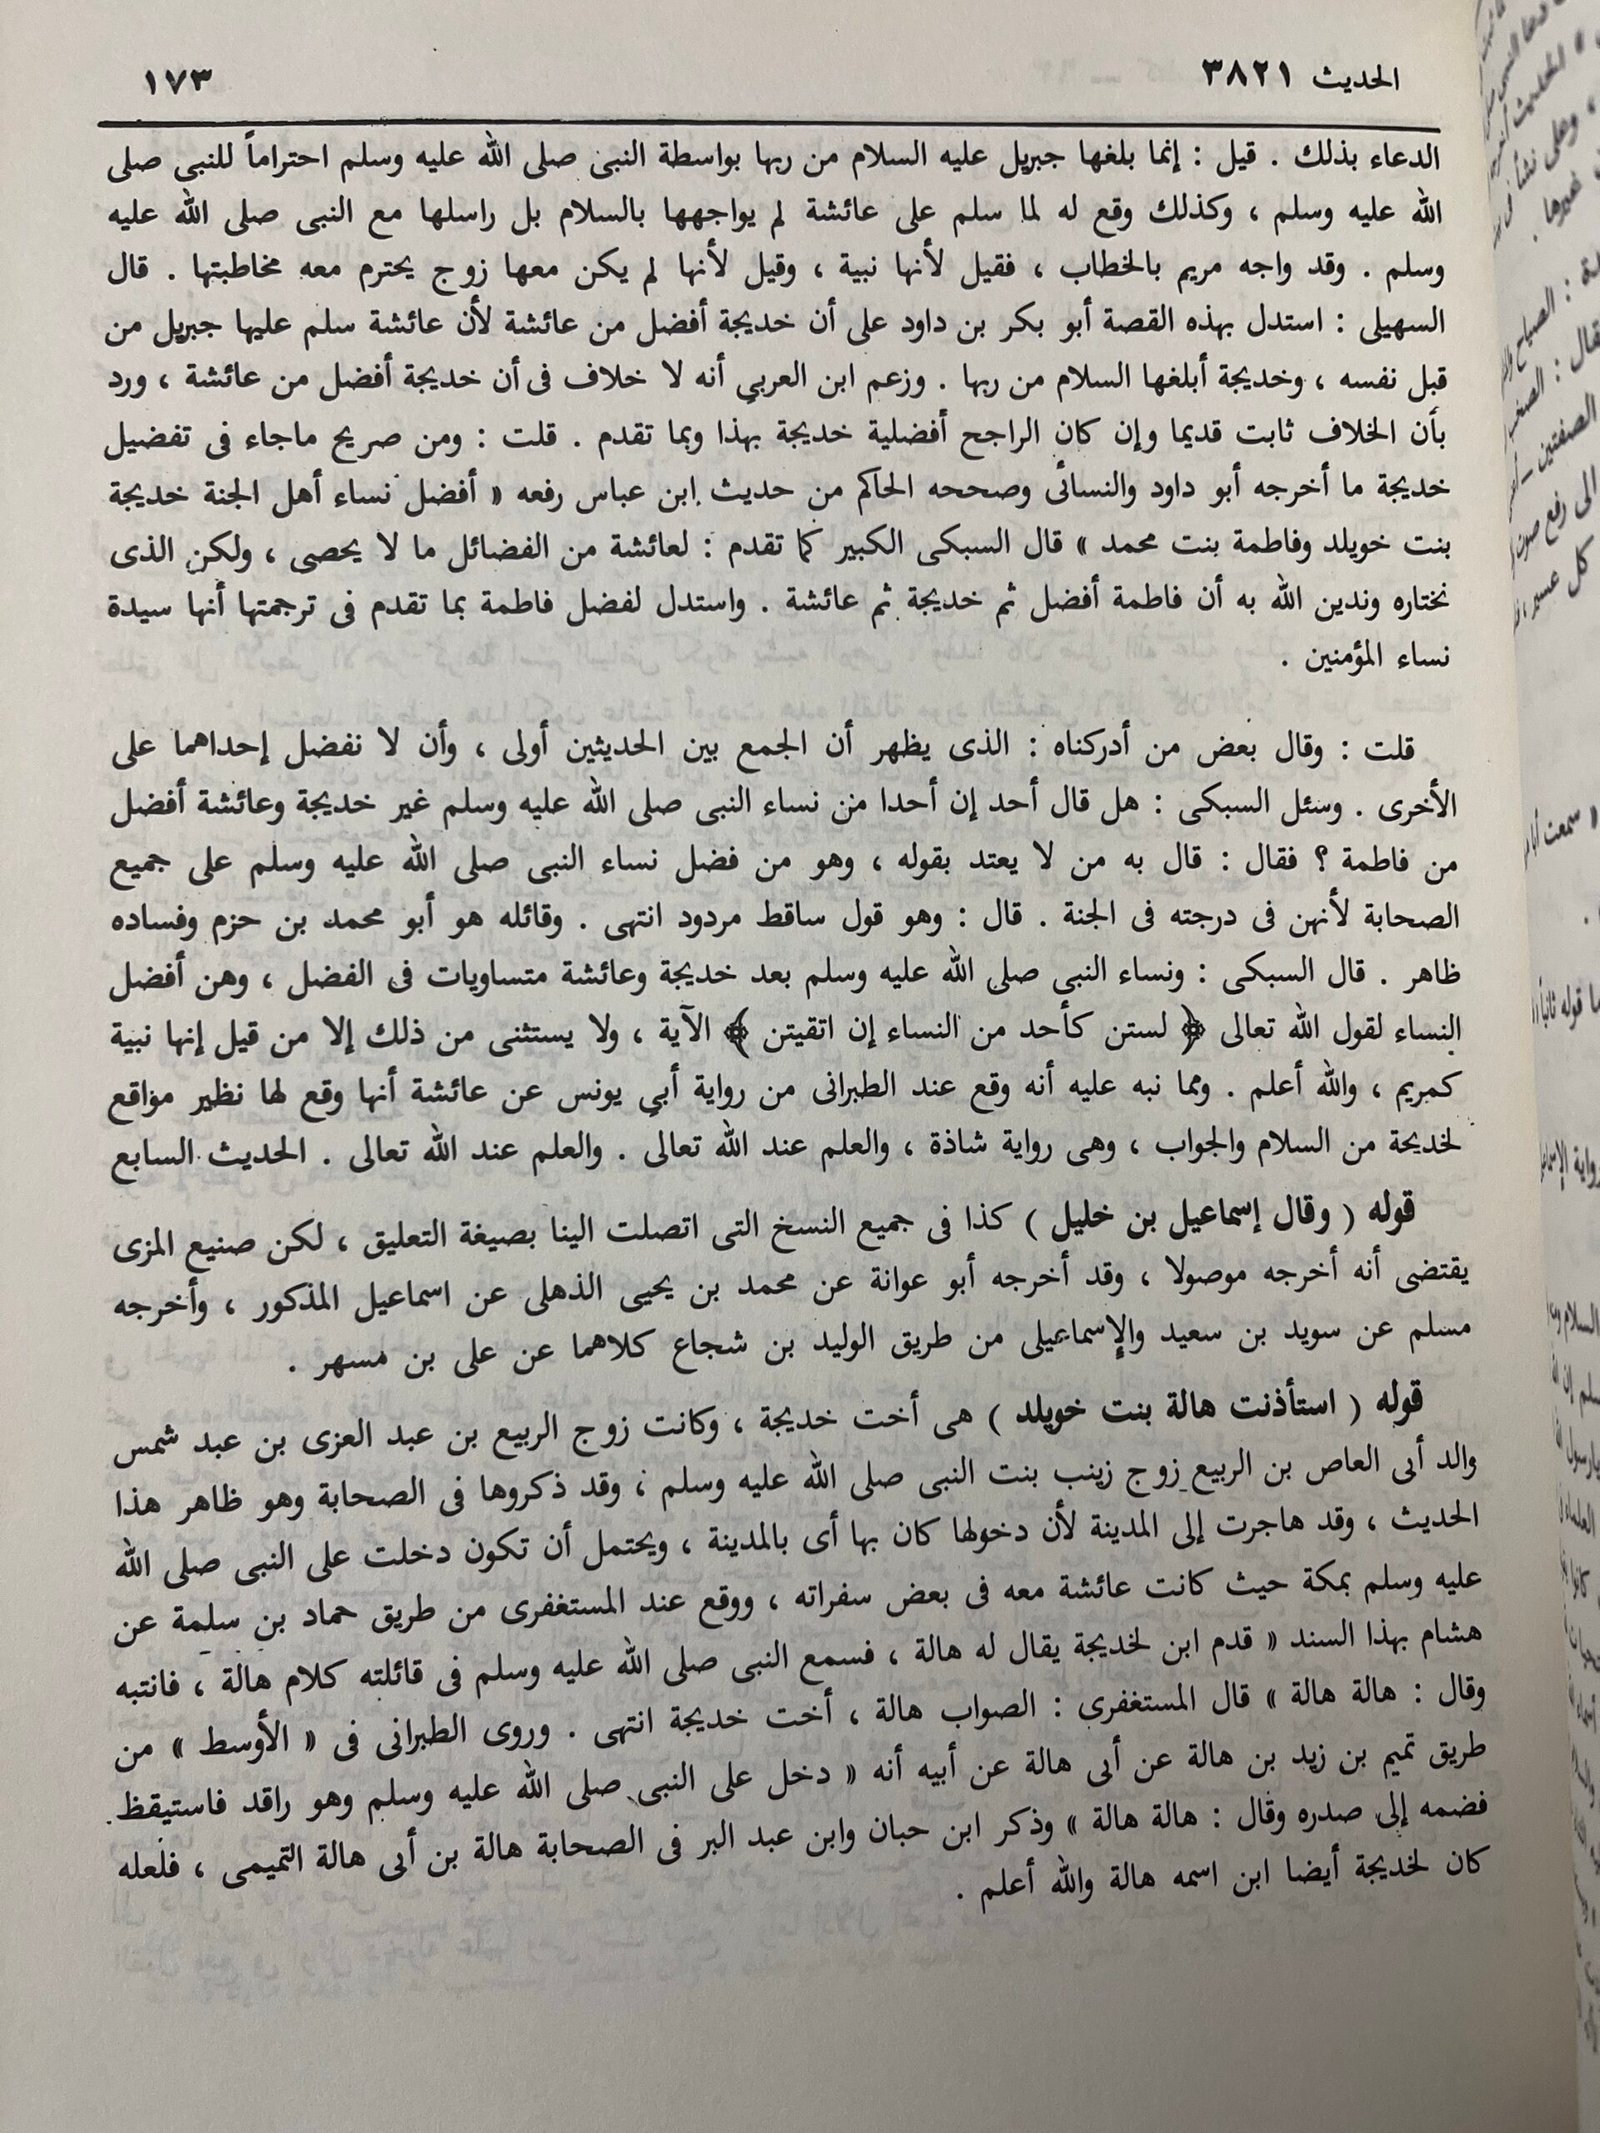 الحديث ٣٨٢١
١٧٣
الدعاء بذلك . قيل : إنما بلغها جبريل عليه السلام من ربها بواسطة النبى صلى الله عليه وسلم احتراماً للنبى صلى
الله عليه وسلم ، وكذلك وقع له لما سلم على عائشة لم يواجهها بالسلام بل راسلها مع النبى صلى الله عليه
وسلم . وقد واجه مريم بالخطاب ، فقيل لأنها نبية ، وقيل لأنها لم يكن معها زوج يحترم معه مخاطبتها . قال
السهيلى : استدل بهذه القصة أبو بكر بن داود على أن خديجة أفضل من عائشة لأن عائشة سلم عليها جبريل من
قبل نفسه ، وخديجة أبلغها السلام من ربها . وزعم ابن العربى أنه لا خلاف فى أن خديجة أفضل من عائشة ، ورد
بأن الخلاف ثابت قديما وإن كان الراجح أفضلية خديجة بهذا وبما تقدم . قلت : ومن صريح ماجاء فى تفضيل
خديجة ما أخرجه أبو داود والنسائى وصححه الحاكم من حديث ابن عباس رفعه « أفضل نساء أهل الجنة خديجة
بنت خويلد وفاطمة بنت محمد » قال السبكى الكبير كما تقدم : لعائشة من الفضائل ما لا يحصى ، ولكن الذى
نختاره وندين الله به أن فاطمة أفضل ثم خديجة ثم عائشة . واستدل لفضل فاطمة بما تقدم فى ترجمتها أنها سيدة
نساء المؤمنين .
قلت : وقال بعض من أدركناه : الذى يظهر أن الجمع بين الحديثين أولى ، وأن لا نفضل إحداهما على
الأخرى . وسئل السبكى : هل قال أحد إن أحدا من نساء النبى صلى الله عليه وسلم غير خديجة وعائشة أفضل
من فاطمة ؟ فقال : قال به من لا يعتد بقوله ، وهو من فضل نساء النبى صلى الله عليه وسلم على جميع
الصحابة لأنهن فى درجته فى الجنة . قال : وهو قول ساقط مردود انتهى . وقائله هو أبو محمد بن حزم وفساده
ظاهر . قال السبكى : ونساء النبى صلى الله عليه وسلم بعد خديجة وعائشة متساويات فى الفضل ، وهن أفضل
النساء لقول الله تعالى ﴿ لستن كأحد من النساء إن اتقيتن ﴾ الآية ، ولا يستثنى من ذلك إلا من قيل إنها نبية
كمريم ، والله أعلم . ومما نبه عليه أنه وقع عند الطبرانى من رواية أبى يونس عن عائشة أنها وقع لها نظير مواقع
لخديحة من السلام والجواب ، وهى رواية شاذة ، والعلم عند الله تعالى . والعلم عند الله تعالى . الحديث السابع
قوله ( وقال إسماعيل بن خليل ) كذا فى جميع النسخ التى اتصلت الينا بصيغة التعليق ، لكن صنيع المزى
يقتضى أنه أخرجه موصولا ، وقد أخرجه أبو عوانة عن محمد بن يحيى الذهلى عن اسماعيل المذكور ، وأخرجه
مسلم عن سويد بن سعيد والإسماعيلى من طريق الوليد بن شجاع كلاهما عن على بن مسهر .
قوله ( استأذنت هالة بنت خويلد ) هى أخت خديجة ، وكانت زوج الربيع بن عبد العزى بن عبد شمس
والد أبى العاص بن الربيع زوج زينب بنت النبى صلى الله عليه وسلم ، وقد ذكروها فى الصحابة وهو ظاهر هذا
الحديث ، وقد هاجرت إلى المدينة لأن دخولها كان بها أى بالمدينة ، ويحتمل أن تكون دخلت على النبى صلى الله
عليه وسلم بمكة حيث كانت عائشة معه فى بعض سفراته ، ووقع عند المستغفرى من طريق حماد بن سلمة عن
هشام بهذا السند « قدم ابن لخديجة يقال له هالة ، فسمع النبى صلى الله عليه وسلم فى قائلته كلام هالة ، فانتبه
وقال : هالة هالة » قال المستغفرى : الصواب هالة ، أخت خديجة انتهى . وروى الطبرانى فى « الأوسط » من
طريق تميم بن زيد بن هالة عن أبى هالة عن أبيه أنه « دخل على النبى صلى الله عليه وسلم وهو راقد فاستيقظ
فضمه إلى صدره وقال : هالة هالة » وذكر ابن حبان وابن عبد البر فى الصحابة هالة بن أبى هالة التميمى ، فلعله
كان لخديجة أيضا ابن اسمه هالة والله أعلم .